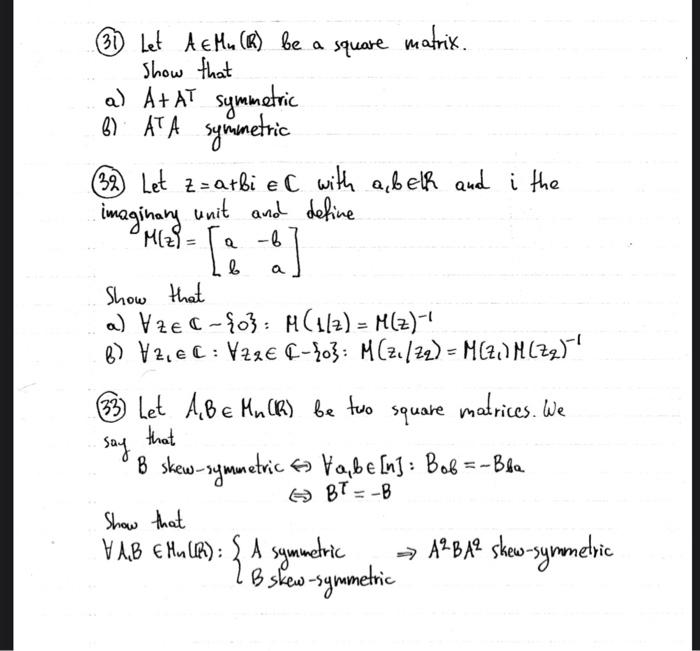 (31) Let A∈Mn(ℝ) be a square matrix.
Show that
a) A+Aᵀ symmetric
b) AᵀA symmetric
(32) Let z=a+bi ∈ ℂ with a,b∈ℝ and i the
imaginary unit and define
M(z) = [a -b
b a]
Show that
a) ∀z∈ℂ-{0}: M(1/z) = M(z)⁻¹
b) ∀z₁∈ℂ: ∀z₂∈ℂ-{0}: M(z₁/z₂) = M(z₁)M(z₂)⁻¹
(33) Let A,B∈Mn(ℝ) be two square matrices. We
say that
B skew-symmetric ⇔ ∀a,b∈[n]: Bab = -Bba
⇔ Bᵀ = -B
Show that
∀A,B∈Mn(ℝ): { A symmetric ⇒ A²BA² skew-symmetric
B skew-symmetric